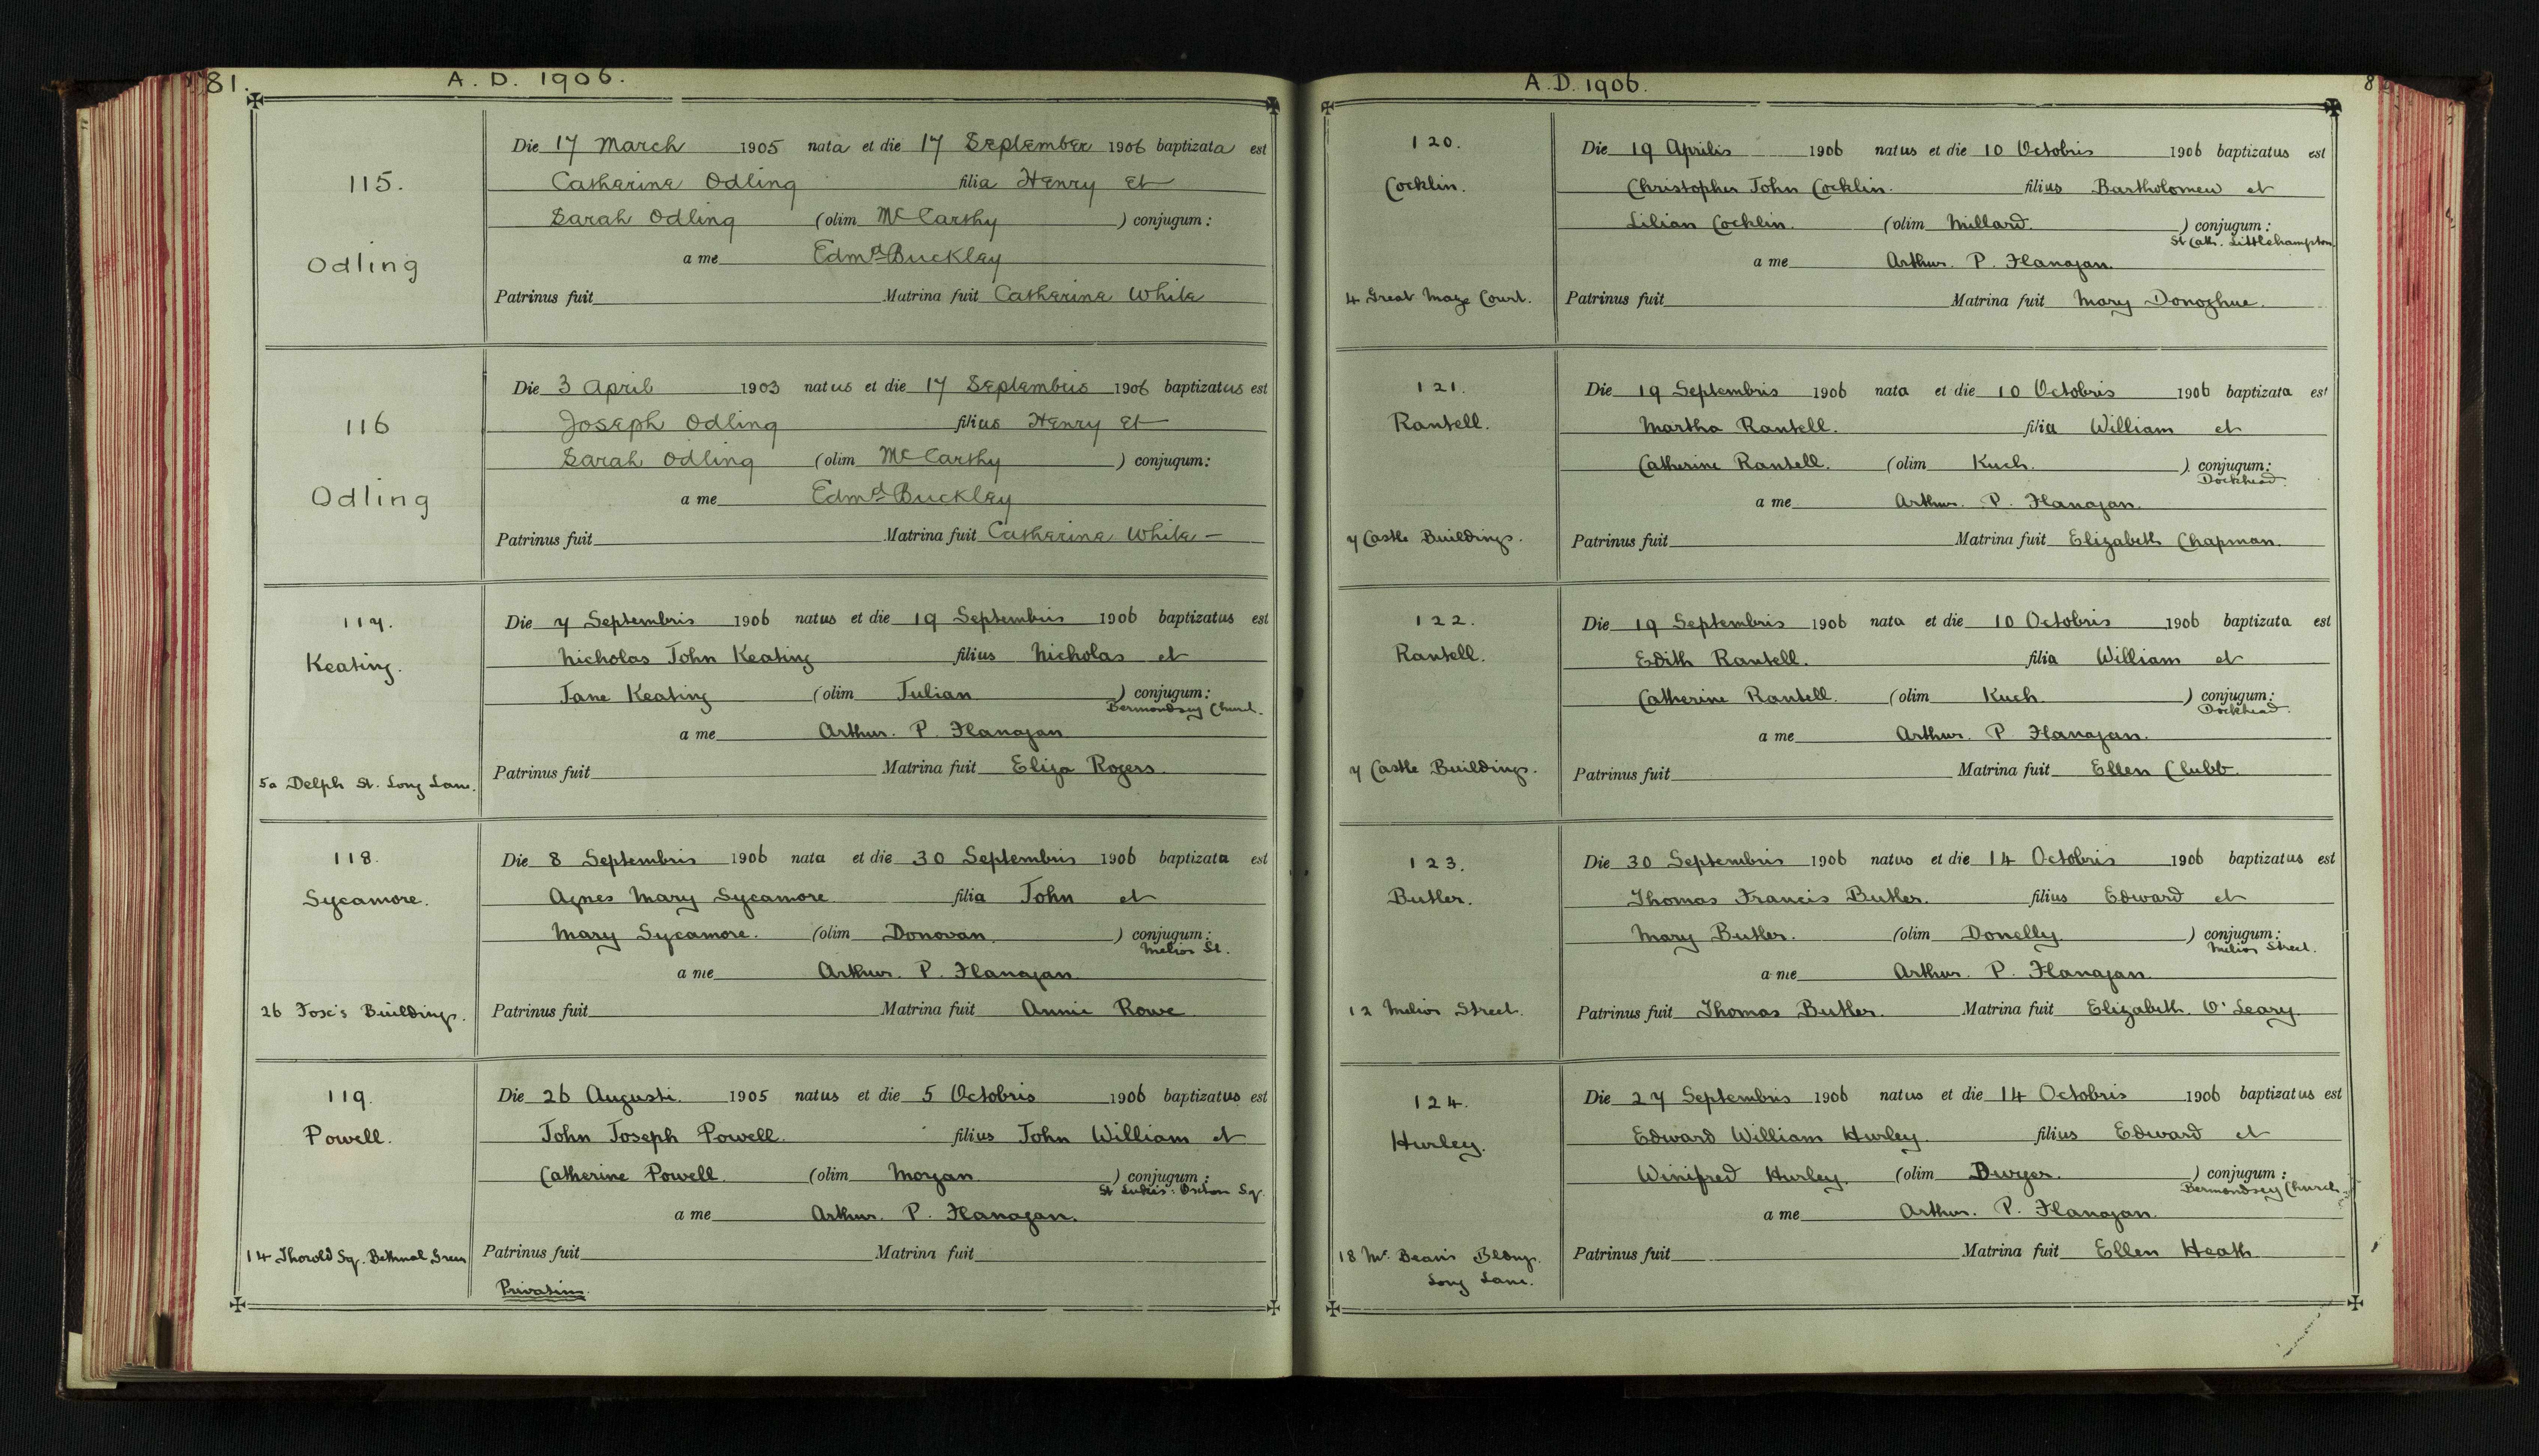 81.
A. D. 1906.
115.
Odling
Die 17 March 1905 nata et die 17 September 1906 baptizata est
Catharina Odling filia Henry et
Sarah Odling (olim McCarthy) conjugum:
a me Edmd Buckley
Patrinus fuit Matrina fuit Catharina White
116
Odling
Die 3 April 1903 natus et die 17 Septembris 1906 baptizatus est
Joseph Odling filius Henry et
Sarah Odling (olim McCarthy) conjugum:
a me Edmd Buckley
Patrinus fuit Matrina fuit Catharina White —
117.
Keating.
5a Delph St. Long Lane.
Die 7 Septembris 1906 natus et die 19 Septembris 1906 baptizatus est
Nicholas John Keating filius Nicholas et
Jane Keating (olim Julian) conjugum:
Bermondsey Church.
a me Arthur. P. Flanagan
Patrinus fuit Matrina fuit Eliza Rogers.
118.
Sycamore.
26 Fox's Buildings.
Die 8 Septembris 1906 nata et die 30 Septembris 1906 baptizata est
Agnes Mary Sycamore filia John et
Mary Sycamore. (olim Donovan) conjugum:
Melior St.
a me Arthur. P. Flanagan.
Patrinus fuit Matrina fuit Annie Rowe
119.
Powell.
14 Thorold Sq. Bethnal Green
Die 26 Augusti. 1905 natus et die 5 Octobris 1906 baptizatus est
John Joseph Powell. filius John William et
Catherine Powell. (olim Morgan) conjugum:
St Luke's: Sq.
a me Arthur. P. Flanagan.
Patrinus fuit Matrina fuit
Privatim.
A.D. 1906.
8
120.
Cocklin.
4 Great Maze Court.
Die 19 Aprilis 1906 natus et die 10 Octobris 1906 baptizatus est
Christopher John Cocklin. filius Bartholomew et
Lilian Cocklin. (olim Millard.) conjugum:
St Cath. Littlehampton.
a me Arthur. P. Flanagan.
Patrinus fuit Matrina fuit Mary Donoghue.
121.
Rantell.
7 Castle Buildings.
Die 19 Septembris 1906 nata et die 10 Octobris 1906 baptizata est
Martha Rantell. filia William et
Catherine Rantell. (olim Kuch.) conjugum:
Dockhead.
a me Arthur. P. Flanagan.
Patrinus fuit Matrina fuit Elizabeth Chapman.
122.
Rantell.
7 Castle Buildings.
Die 19 Septembris 1906 nata et die 10 Octobris 1906 baptizata est
Edith Rantell. filia William et
Catherine Rantell. (olim Kuch.) conjugum:
Dockhead.
a me Arthur. P Flanagan.
Patrinus fuit Matrina fuit Ellen Clubb.
123.
Butler.
12 Melior Street.
Die 30 Septembris 1906 natus et die 14 Octobris 1906 baptizatus est
Thomas Francis Butler. filius Edward et
Mary Butler. (olim Donelly.) conjugum:
Melior Street.
a me Arthur. P. Flanagan.
Patrinus fuit Thomas Butler. Matrina fuit Elizabeth. O'Leary.
124.
Hurley.
18 Mc Bean's Bldngs.
Long Lane.
Die 27 Septembris 1906 natus et die 14 Octobris 1906 baptizatus est
Edward William Hurley. filius Edward et
Winifred Hurley. (olim Dwyer.) conjugum:
Bermondsey Church.
a me Arthur. P. Flanagan.
Patrinus fuit Matrina fuit Ellen Heath